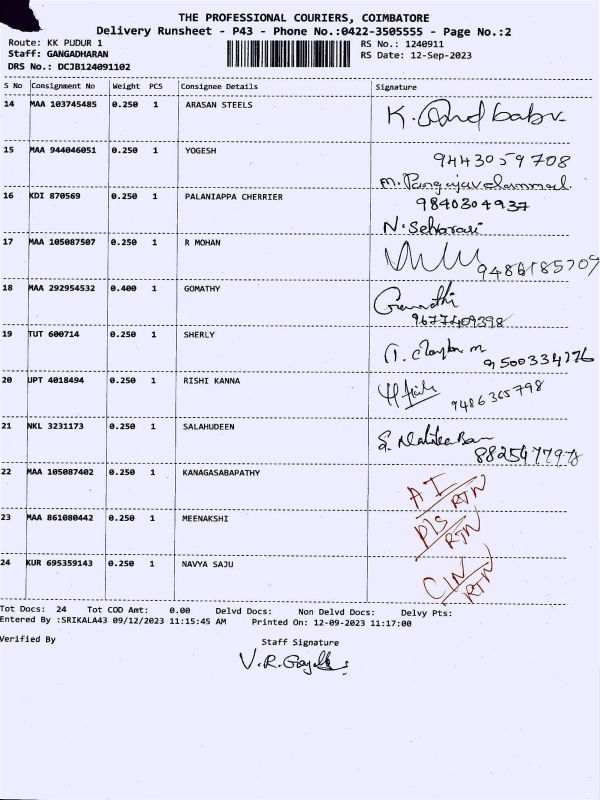 THE PROFESSIONAL COURIERS, COIMBATORE
Delivery Runsheet - P43 - Phone No.:0422-3505555 - Page No.:2
Route: KK PUDUR 1 RS No.: 1240911
Staff: GANGADHARAN RS Date: 12-Sep-2023
DRS No.: DCJB124091102
S No Consignment No Weight PCS Consignee Details Signature
14 MAA 103745485 0.250 1 ARASAN STEELS
15 MAA 944046051 0.250 1 YOGESH 9443059708
16 KDI 870569 0.250 1 PALANIAPPA CHERRIER 9840304937
17 MAA 105087507 0.250 1 R MOHAN
18 MAA 292954532 0.400 1 GOMATHY
9677409398
19 TUT 600714 0.250 1 SHERLY
20 UPT 4018494 0.250 1 RISHI KANNA
9486365798
21 NKL 3231173 0.250 1 SALAHUDEEN
22 MAA 105087402 0.250 1 KANAGASABAPATHY
RTN
23 MAA 861080442 0.250 1 MEENAKSHI
RTN
24 KUR 695359143 0.250 1 NAVYA SAJU
RTN
Tot Docs: 24 Tot COD Amt: 0.00 Delvd Docs: Non Delvd Docs: Delvy Pts:
Entered By :SRIKALA43 09/12/2023 11:15:45 AM Printed On: 12-09-2023 11:17:00
Verified By Staff Signature